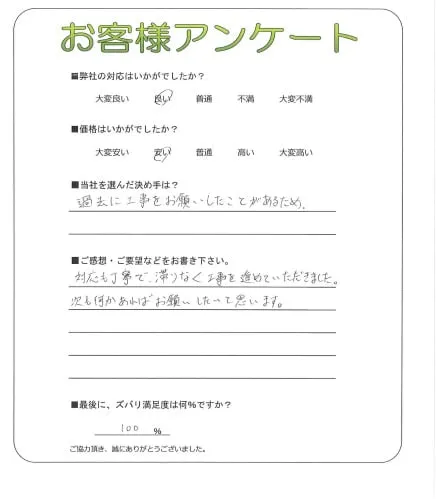 お客様アンケート
■弊社の対応はいかがでしたか？
大変良い 良い 普通 不満 大変不満
■価格はいかがでしたか？
大変安い 安い 普通 高い 大変高い
■当社を選んだ決め手は？
過去に工事をお願いしたことがあるため。
■ご感想・ご要望などをお書き下さい。
対応も丁寧で、滞りなく工事を進めていただきました。
次も何かあればお願いしたいて思います。
■最後に、ズバリ満足度は何％ですか？
100 ％
ご協力頂き、誠にありがとうございました。